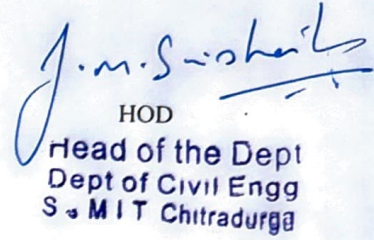 HOD
Head of the Dept
Dept of Civil Engg
MIT Chitradurga